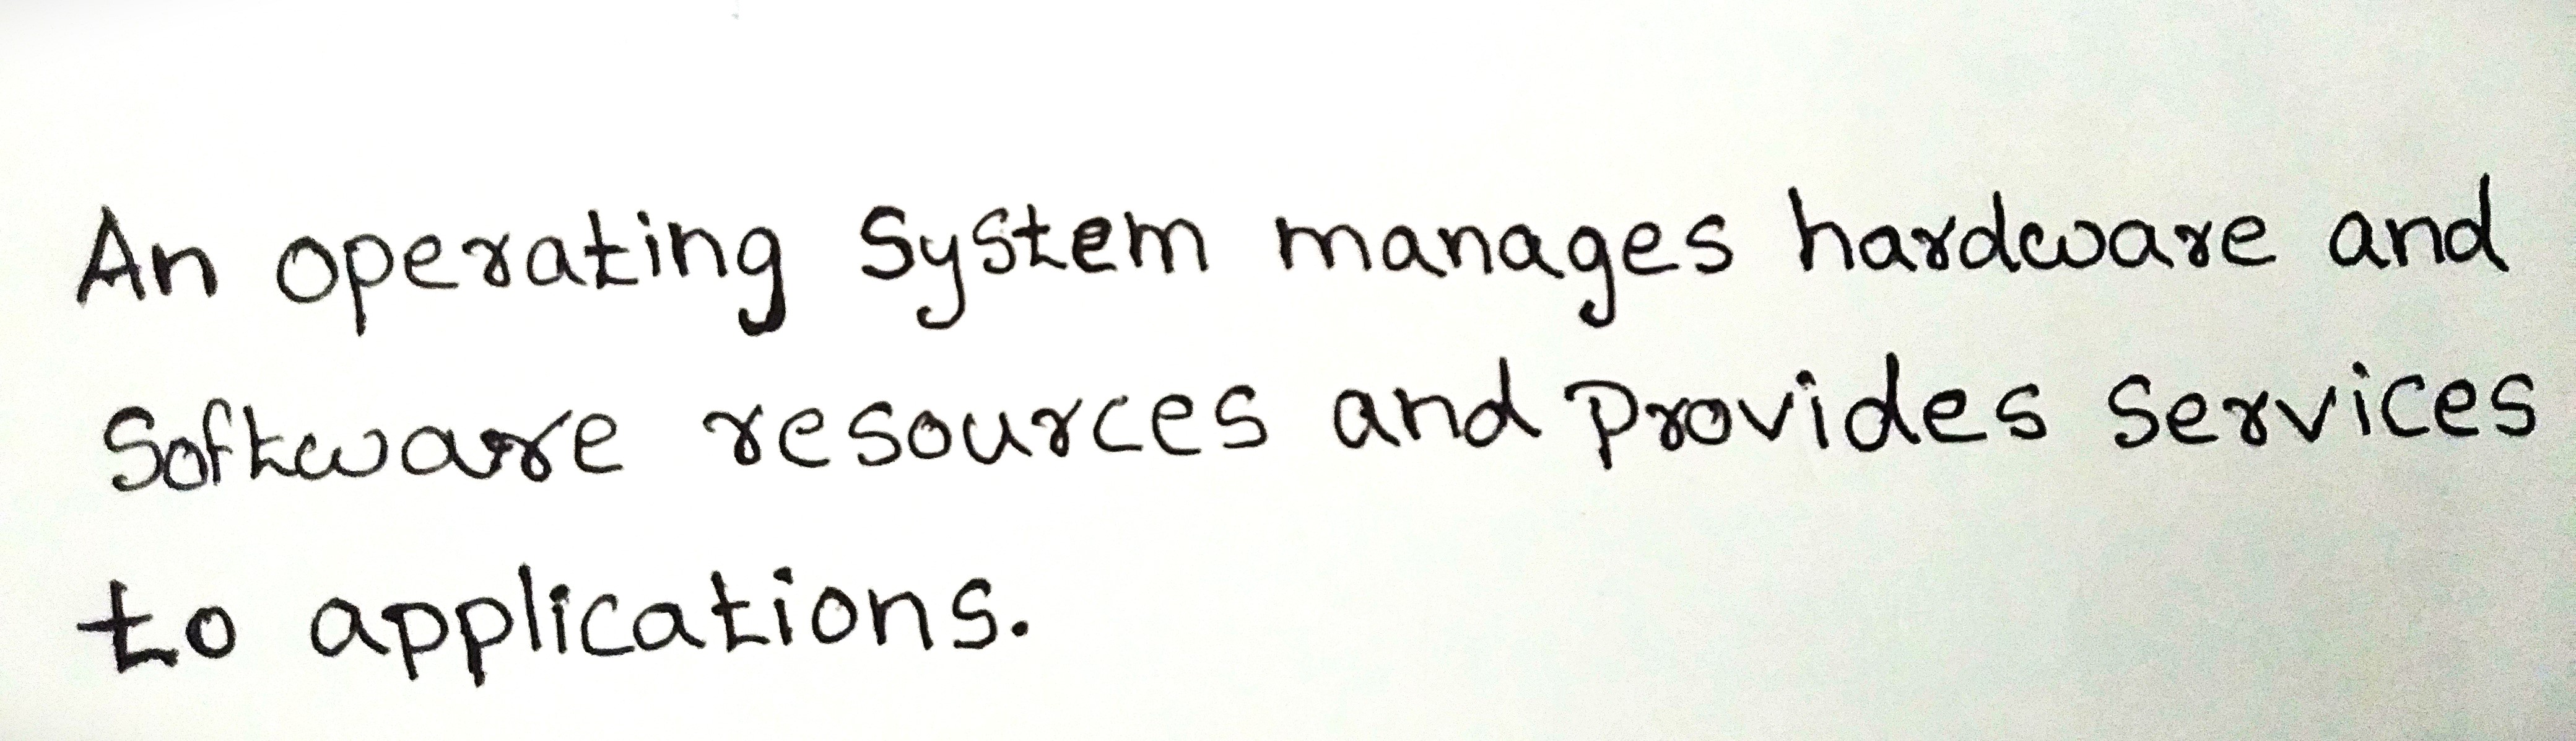 An operating system manages hardware and
Software resources and provides services
to applications.